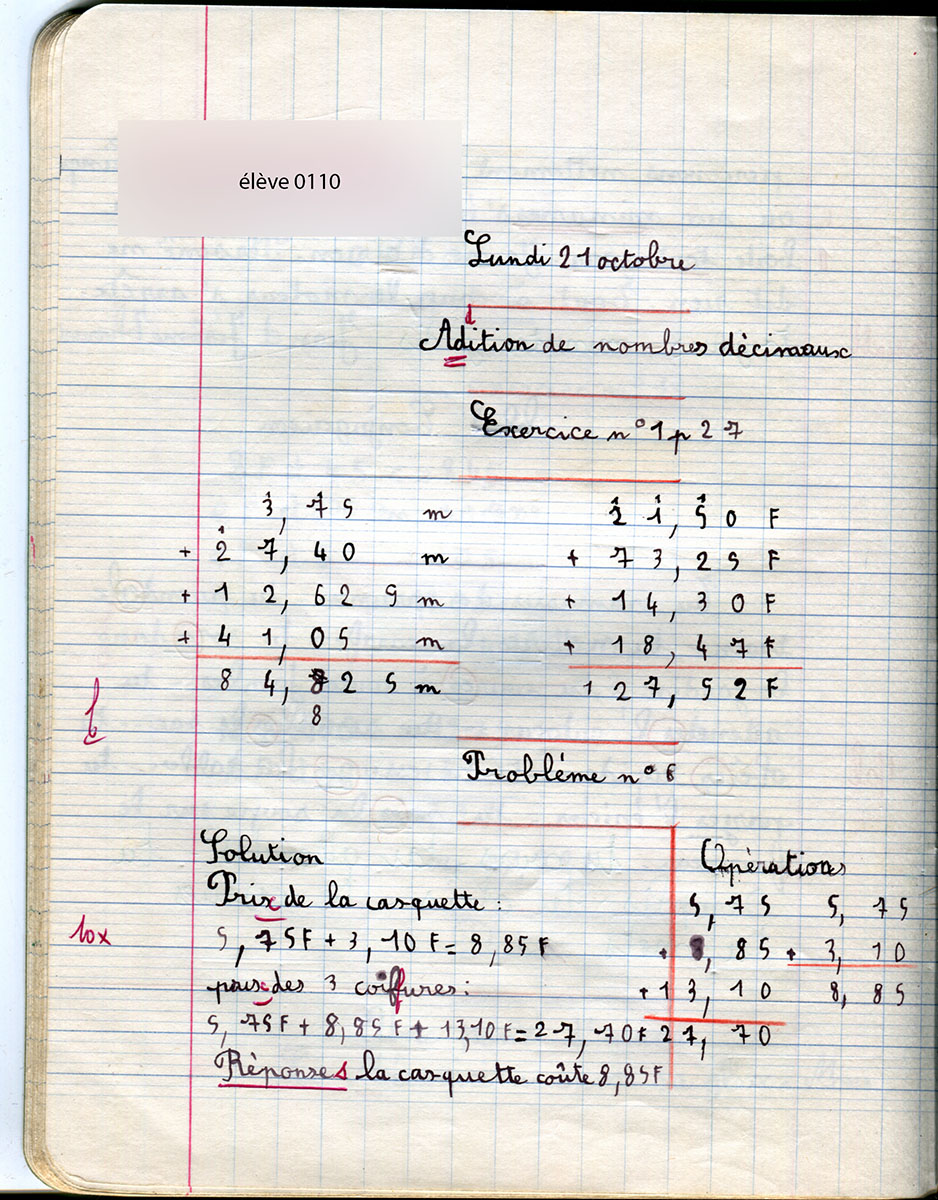 élève 0110
Lundi 21 octobre
d
Adition de nombres décimaux
Exercice n° 1 p 27
3,75 m
+ 27,40 m
+ 12,625 m
+ 41,05 m
84,825 m
8
1 1
21,50 F
+ 73,25 F
+ 14,30 F
+ 18,47 F
127,52 F
b
Problème n° 6
Solution
Prix de la casquette :
5,75F + 3,10F = 8,85F
prix des 3 coiffures :
5,75F + 8,85F + 13,10F = 27,70F
Réponses la casquette coûte 8,85F
Opérations
5,75
+ 8,85
+ 13,10
27,70
5,75
+ 3,10
8,85